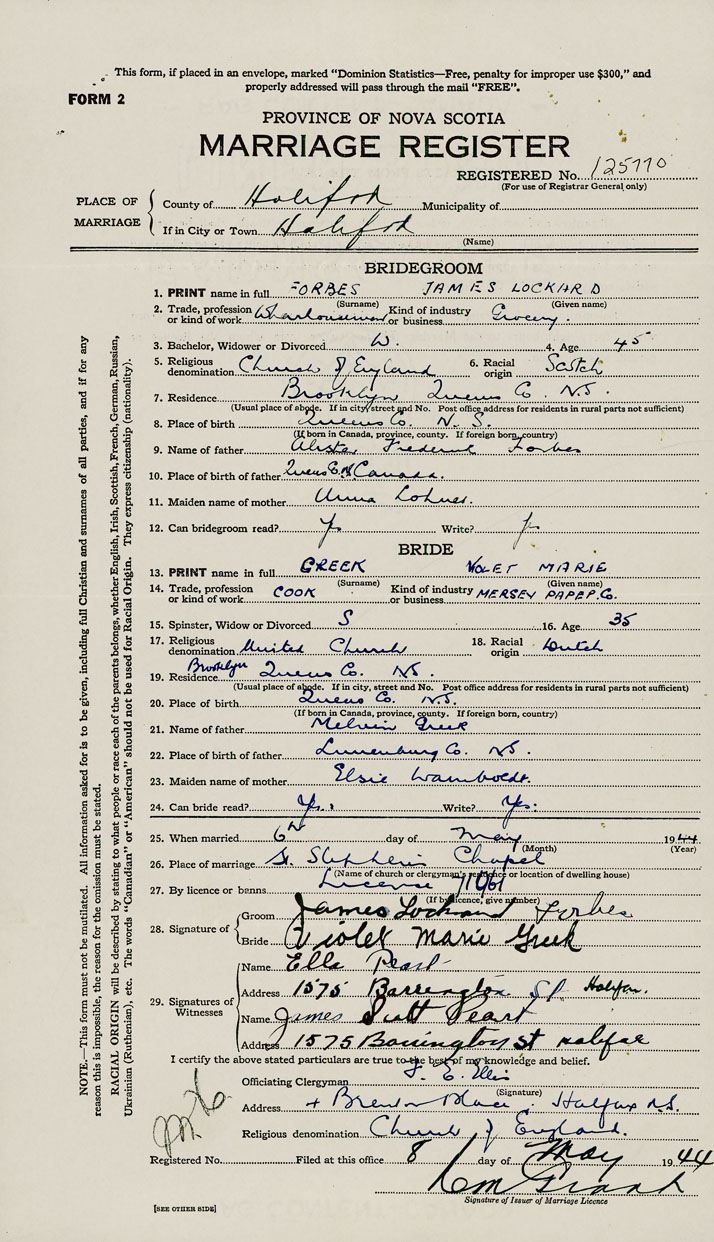 This form, if placed in an envelope, marked "Dominion Statistics—Free, penalty for improper use $300," and
properly addressed will pass through the mail "FREE".
FORM 2
PROVINCE OF NOVA SCOTIA
MARRIAGE REGISTER
REGISTERED No. 125770
(For use of Registrar General only)
PLACE OF MARRIAGE
County of Halifax Municipality of
If in City or Town Halifax
(Name)
BRIDEGROOM
1. PRINT name in full FORBES JAMES LOCKARD
(Surname) (Given name)
2. Trade, profession or kind of work Warehouseman Kind of industry or business Grocery.
3. Bachelor, Widower or Divorced W. 4. Age 45
5. Religious denomination Church of England 6. Racial origin Scotch
7. Residence Brooklyn Queens Co. N.S.
(Usual place of abode. If in city, street and No. Post office address for residents in rural parts not sufficient)
8. Place of birth Queens Co. N. S.
(If born in Canada, province, county. If foreign born, country)
9. Name of father Frederick Forbes
10. Place of birth of father Queens Co. Canada.
11. Maiden name of mother Anna Lohnes.
12. Can bridegroom read? Yes Write? Yes
BRIDE
13. PRINT name in full GREEK VIOLET MARIE
(Surname) (Given name)
14. Trade, profession or kind of work COOK Kind of industry or business MERSEY PAPER Co.
15. Spinster, Widow or Divorced S 16. Age 35
17. Religious denomination United Church 18. Racial origin Dutch
19. Residence Brooklyn Queens Co. N.S.
(Usual place of abode. If in city, street and No. Post office address for residents in rural parts not sufficient)
20. Place of birth Queens Co. N.S.
(If born in Canada, province, county. If foreign born, country)
21. Name of father Melvin Greek
22. Place of birth of father Lunenburg Co. N.S.
23. Maiden name of mother Elsie Wamboldt.
24. Can bride read? Yes. Write? Yes.
25. When married 6th day of May 1944
(Month) (Year)
26. Place of marriage St. Stephen's Chapel
(Name of church or clergyman's residence or location of dwelling house)
27. By licence or banns License
(If by licence, give number)
28. Signature of
Groom James Lockard Forbes
Bride Violet Marie Greek
29. Signatures of Witnesses
Name Ella Peart
Address 1575 Barrington St Halifax.
Name James Scott Peart
Address 1575 Barrington st Halifax
I certify the above stated particulars are true to the best of my knowledge and belief.
Officiating Clergyman E. Ellis
(Signature)
Address Place. Halifax N.S.
Religious denomination Church of England.
Registered No. Filed at this office 8 day of May 1944
Grant
Signature of Issuer of Marriage Licence
[SEE OTHER SIDE]
NOTE.—This form must not be mutilated. All information asked for is to be given, including full Christian and surnames of all parties, and if for any
reason this is impossible, the reason for the omission must be stated.
RACIAL ORIGIN will be described by stating to what people or race each of the parents belongs, whether English, Irish, Scottish, French, German, Russian,
Ukrainian (Ruthenian), etc. The words "Canadian" or "American" should not be used for Racial Origin. They express citizenship (nationality).